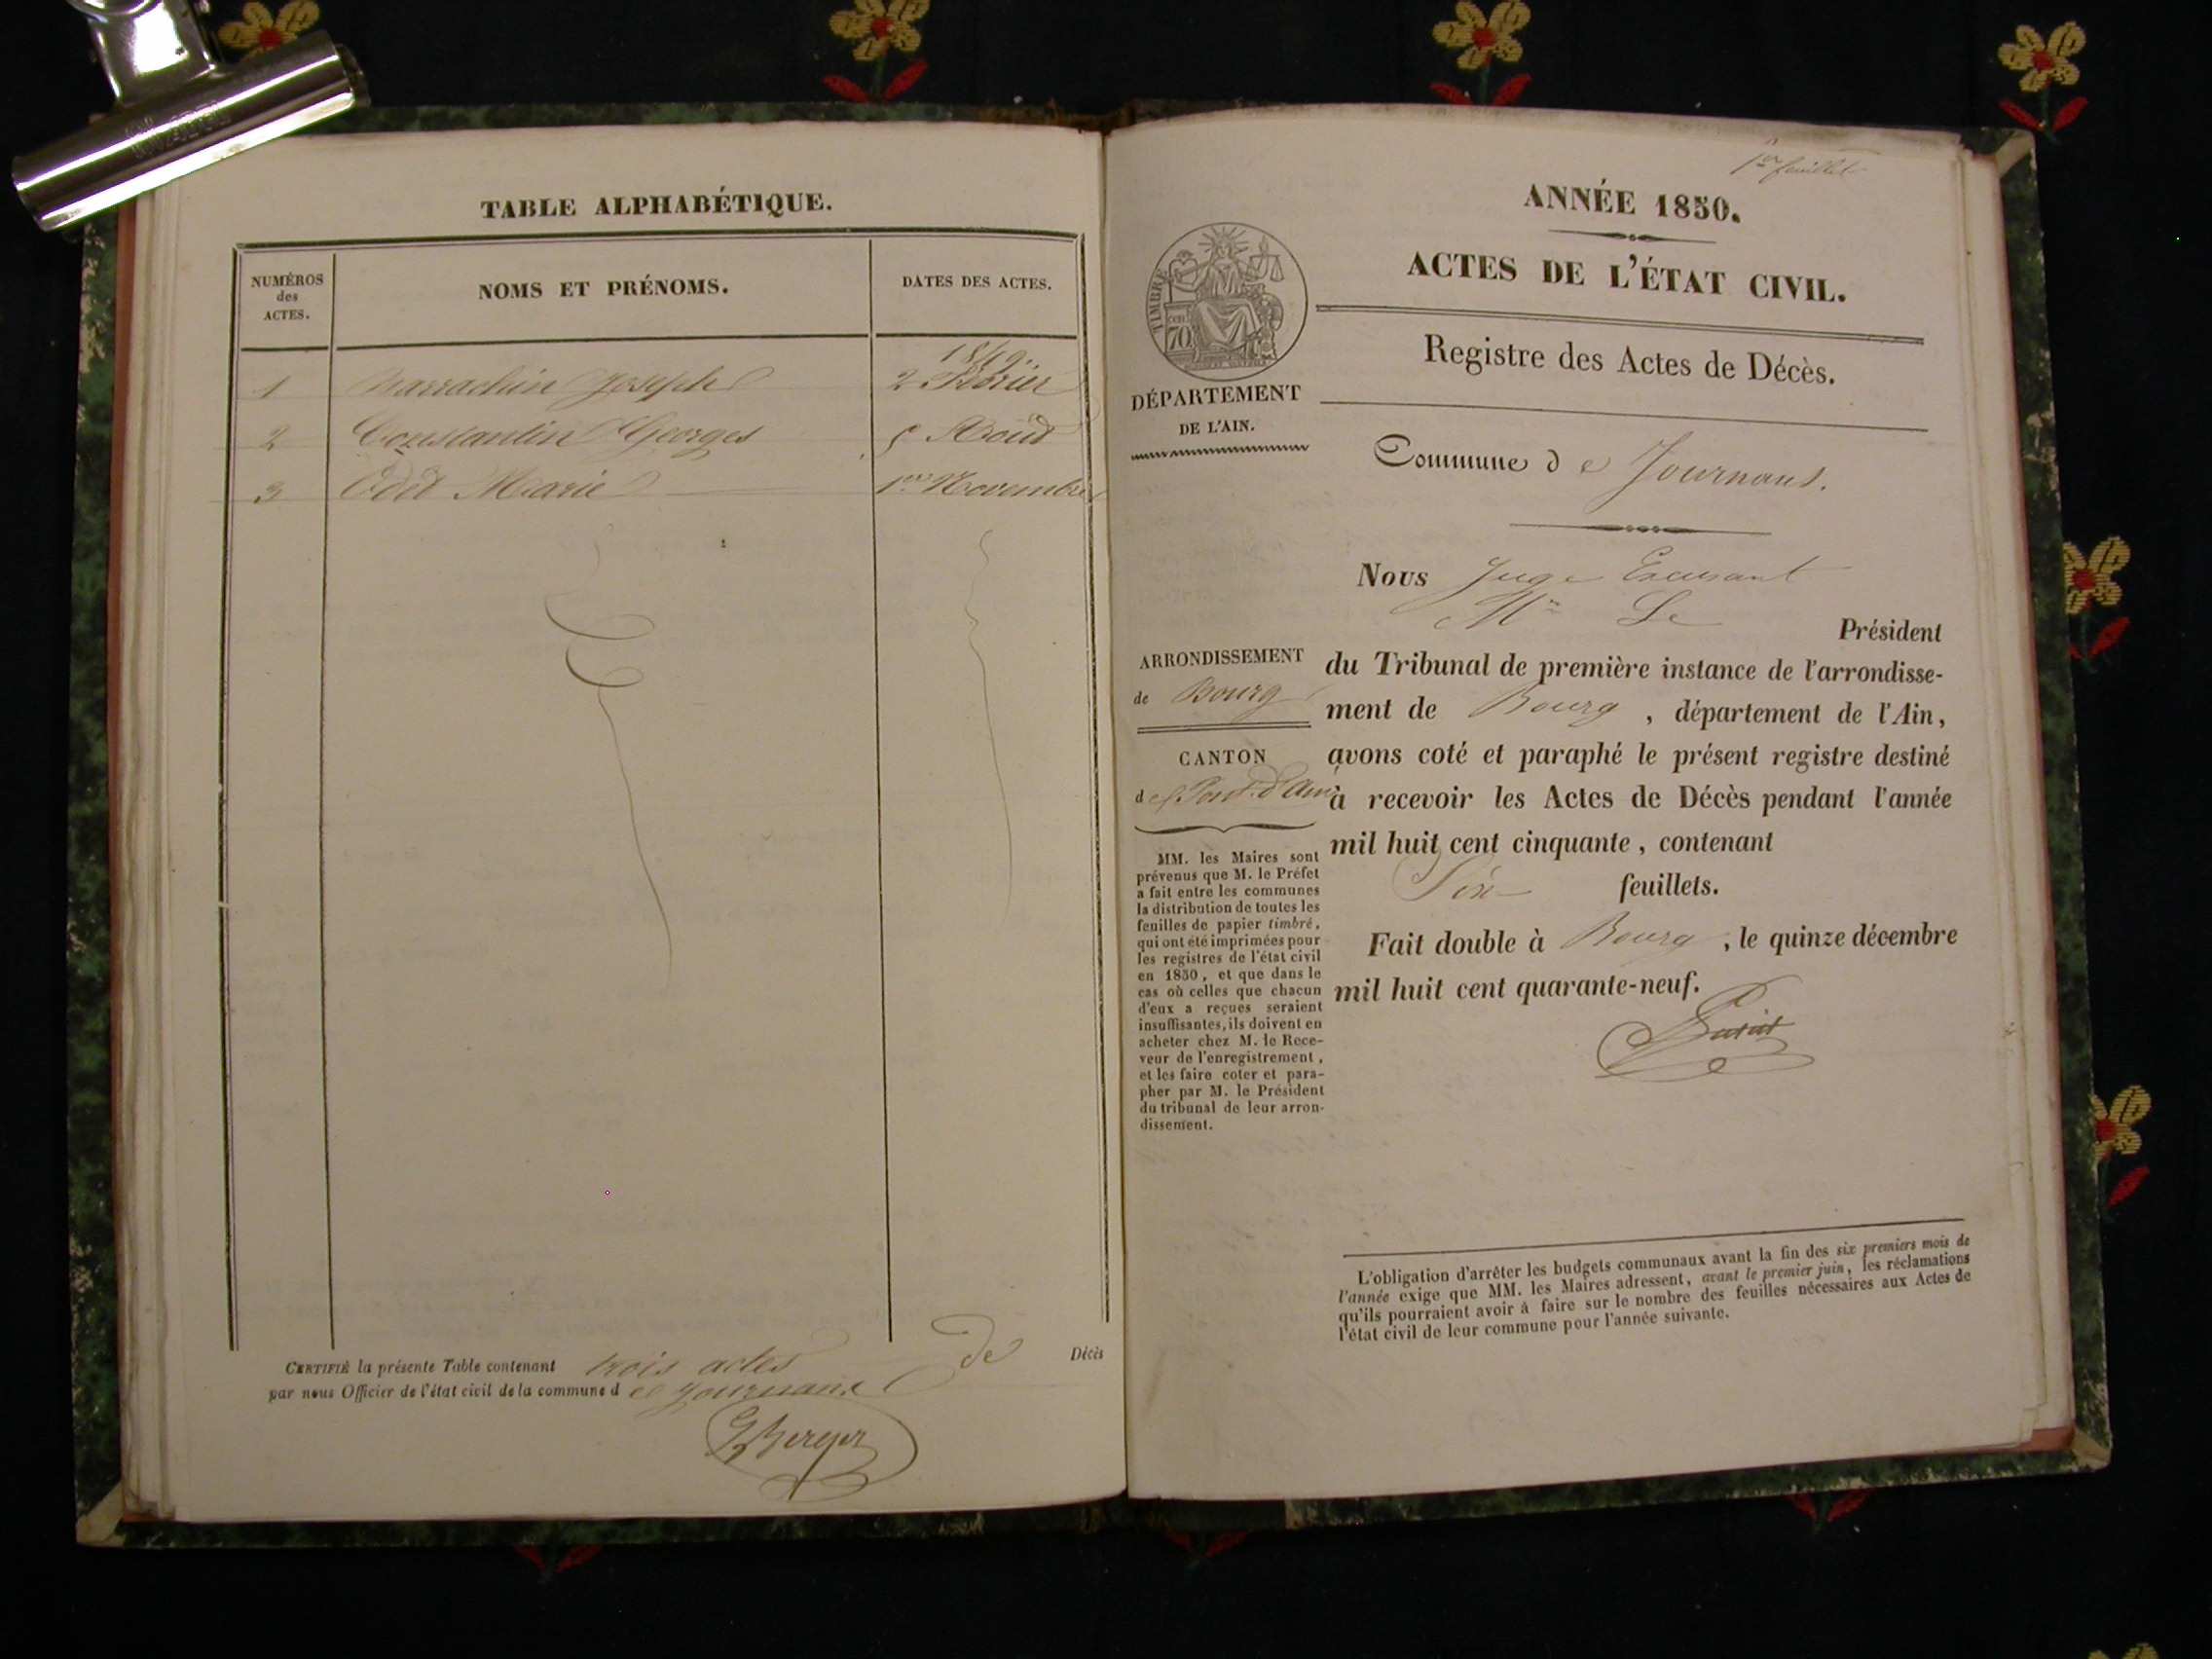 TABLE ALPHABÉTIQUE.
NUMÉROS
des
ACTES.
NOMS ET PRÉNOMS.
DATES DES ACTES.
1849.
1 Barrachin Joseph 2 Février
2 Constantin Georges 5 Aout
3 Odet Marie 1er Novembre
CERTIFIÉ la présente Table contenant trois actes de Décès
par nous Officier de l'état civil de la commune d e Journans
Berger
1er feuillet
ANNÉE 1850.
ACTES DE L'ÉTAT CIVIL.
TIMBRE
70
cen.
Registre des Actes de Décès.
DÉPARTEMENT
DE L'AIN.
Commune d e Journans.
Nous Juge Excusant
Mr Le
Président
du Tribunal de première instance de l'arrondisse-
ment de Bourg, département de l'Ain,
avons coté et paraphé le présent registre destiné
à recevoir les Actes de Décès pendant l'année
mil huit cent cinquante, contenant
Six feuillets.
Fait double à Bourg, le quinze décembre
mil huit cent quarante-neuf.
ARRONDISSEMENT
de Bourg
CANTON
de Pont-d'Ain
MM. les Maires sont
prévenus que M. le Préfet
a fait entre les communes
la distribution de toutes les
feuilles de papier timbré,
qui ont été imprimées pour
les registres de l'état civil
en 1850, et que dans le
cas où celles que chacun
d'eux a reçues seraient
insuffisantes, ils doivent en
acheter chez M. le Rece-
veur de l'enregistrement,
et les faire coter et para-
pher par M. le Président
du tribunal de leur arron-
dissement.
L'obligation d'arrêter les budgets communaux avant la fin des six premiers mois de
l'année exige que MM. les Maires adressent, avant le premier juin, les réclamations
qu'ils pourraient avoir à faire sur le nombre des feuilles nécessaires aux Actes de
l'état civil de leur commune pour l'année suivante.